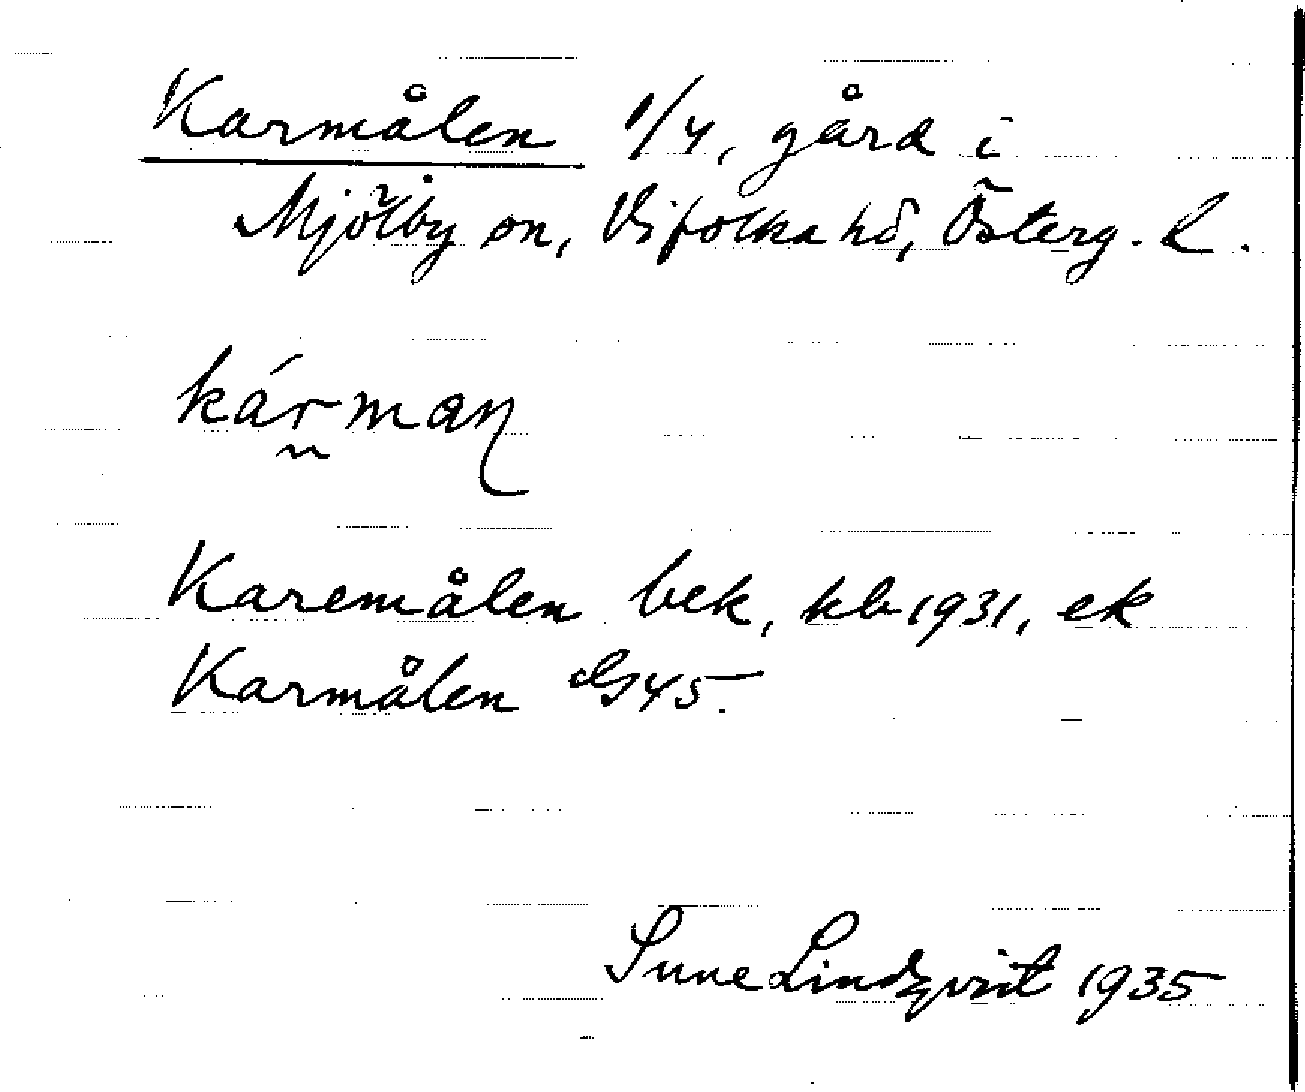 Karmålen 1/4, gård i
Mjölby sn, Vifolka hd, Österg. L.
kárman
Karemålen bek, kb 1931, ek
Karmålen GS45.
Sune Lindqvist 1935